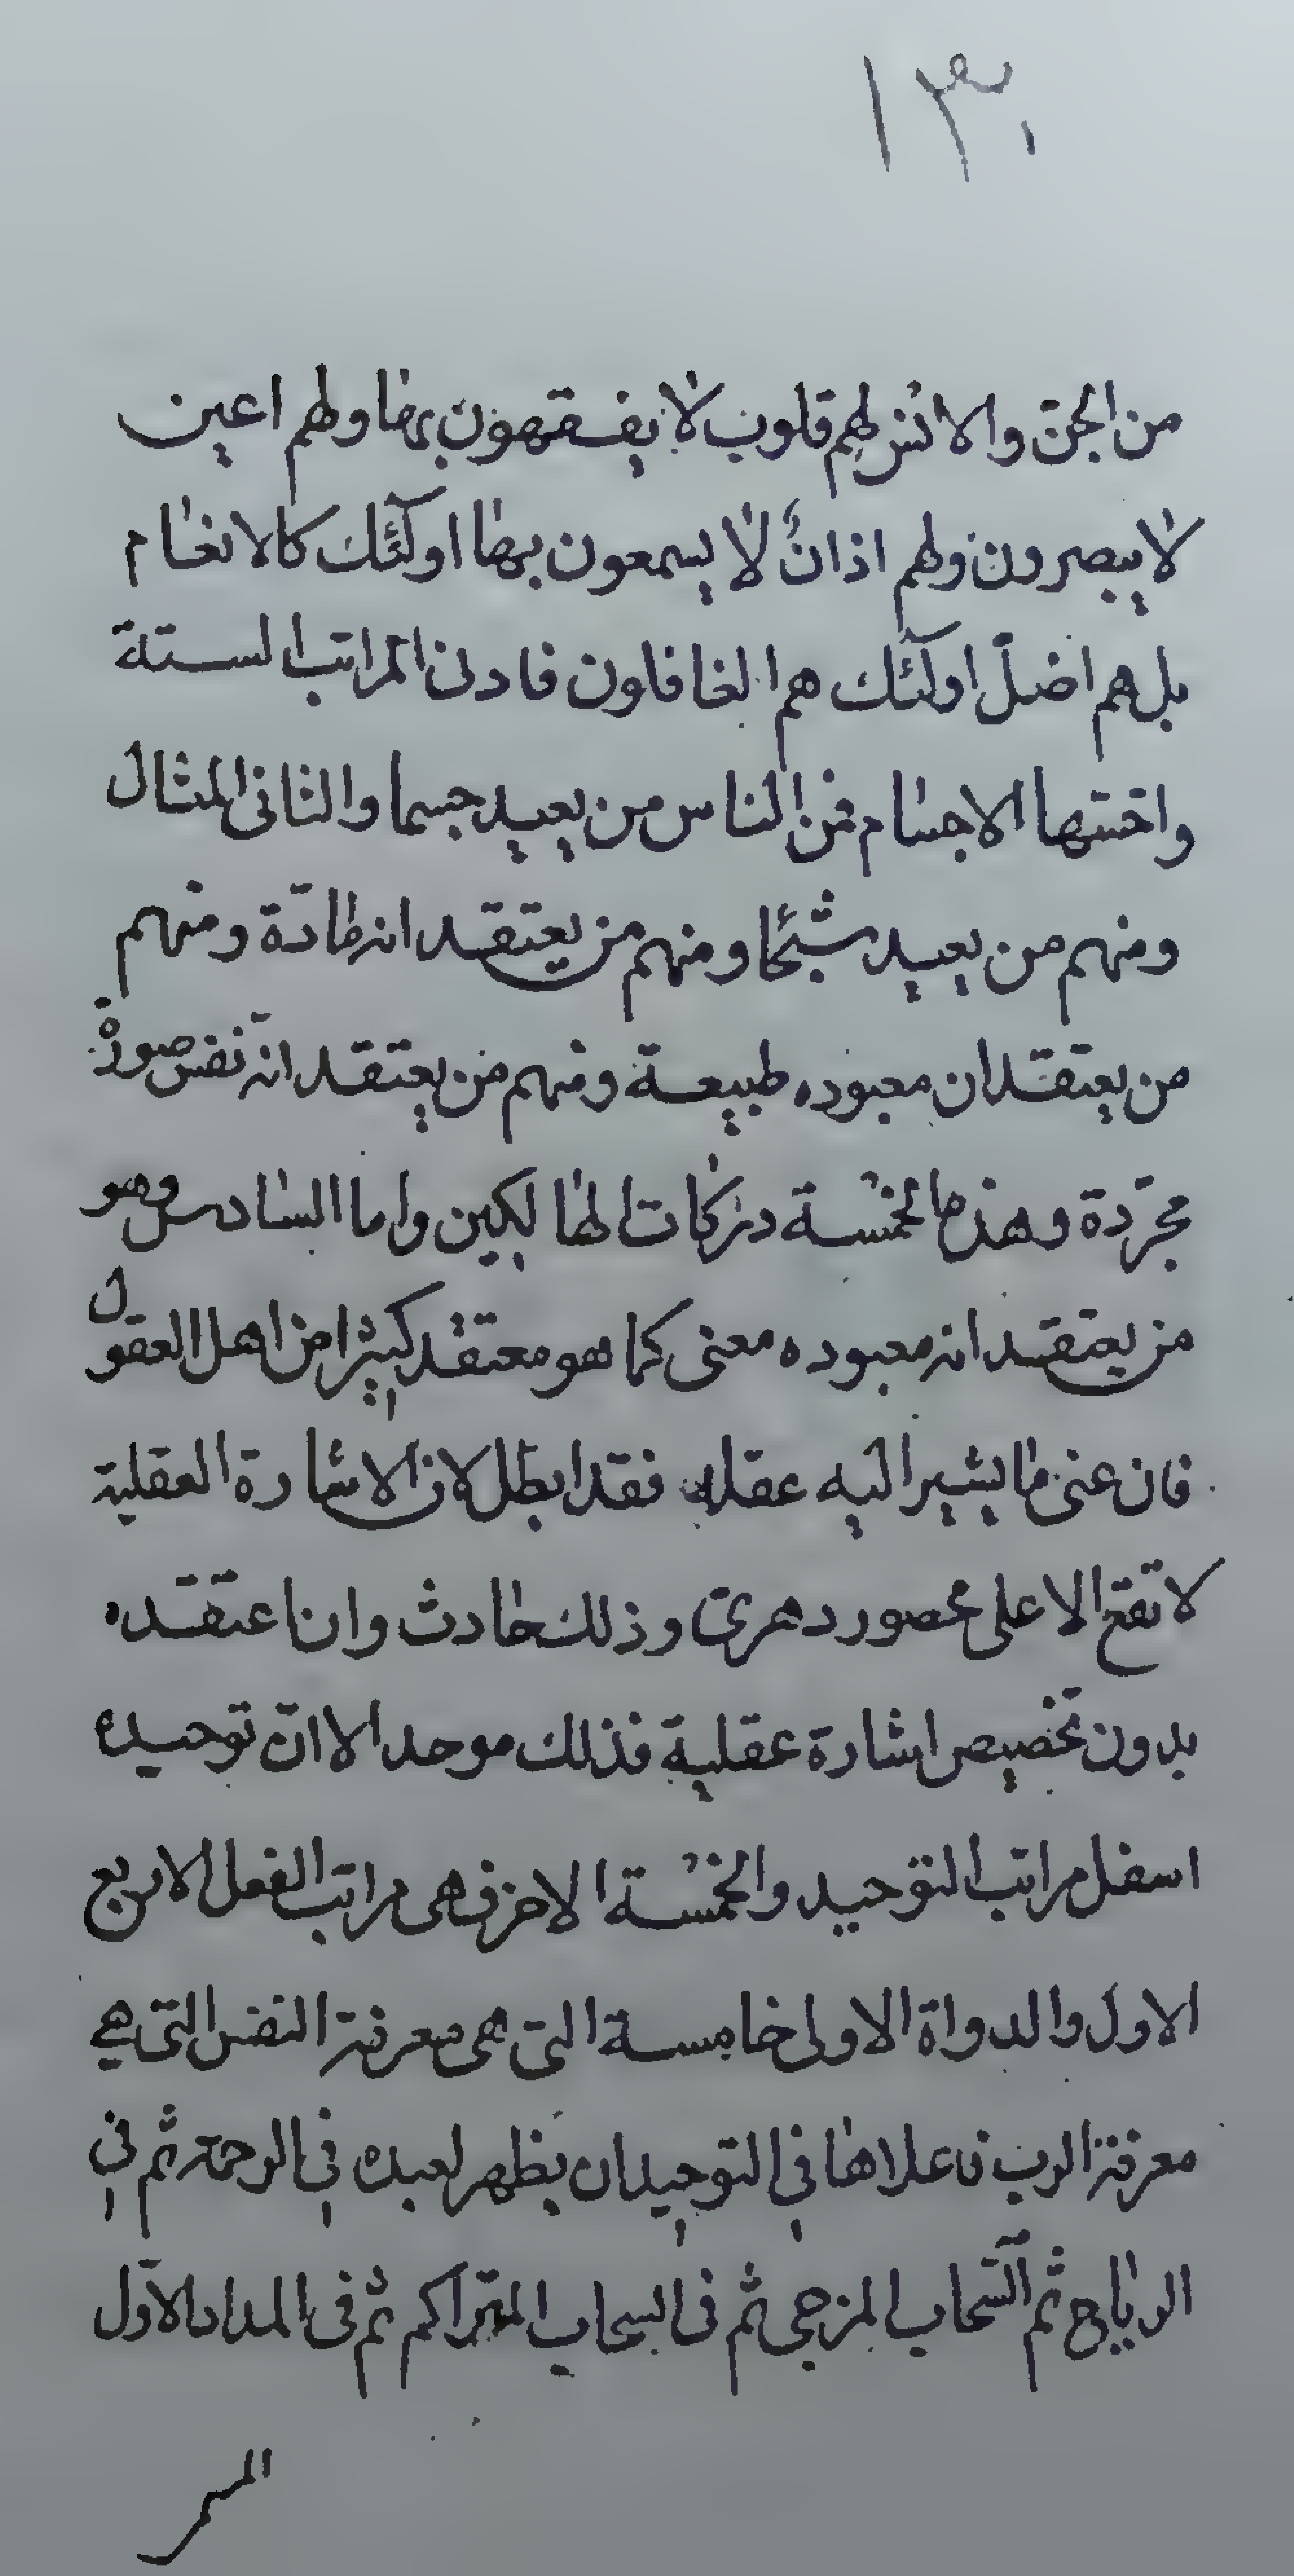 ١٣٠
من الجنّ والانس لهم قلوب لا يفقهون بها ولهم اعين
لا يبصرون ولهم اذانٌ لا يسمعون بها اولئك كالانعام
بل هم اضلّ اولئك هم الغافلون فادنى المراتب الستة
واخسّها الاجسام فمن الناس من يعبد جسما والثانى المثال
ومنهم من يعبد شبحًا ومنهم من يعتقد انه مادّة ومنهم
من يعتقد ان معبوده طبيعة ومنهم من يعتقد انّه نفس صورة
مجرّدة وهذه الخمسة دركات الهالكين واما السادس وهو
من يعتقد انه معبوده معنى كما هو معتقد كثيرا من اهل العقول
فان عنى ما يشير اليه عقله فقد ابطل لان الاشارة العقلية
لا تقع الا على محصور دهرىّ وذلك حادث وان اعتقده
بدون تخصيص اشارة عقلية فذلك موحد الا انّ توحيده
اسفل مراتب التوحيد والخمسة الاخر فهى مراتب الفعل الاربع
الاول والدواة الاولى خامسة التى هى معرفة النفس التى هي
معرفة الرب فاعلاها فى التوحيد ان يظهر لعبده فى الرحمة ثم فى
الرياح ثم السّحاب المزجى ثم فى السحاب المتراكم ثم فى المداد الاوّل